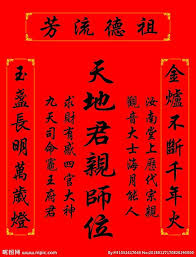 祖德流芳
金爐不斷千年火
汝南堂上歷代宗親
觀音大士海月能人
天地君親師位
求財有感四官大神
九天司命竈王府君
玉盞長明萬歲燈
昵图网